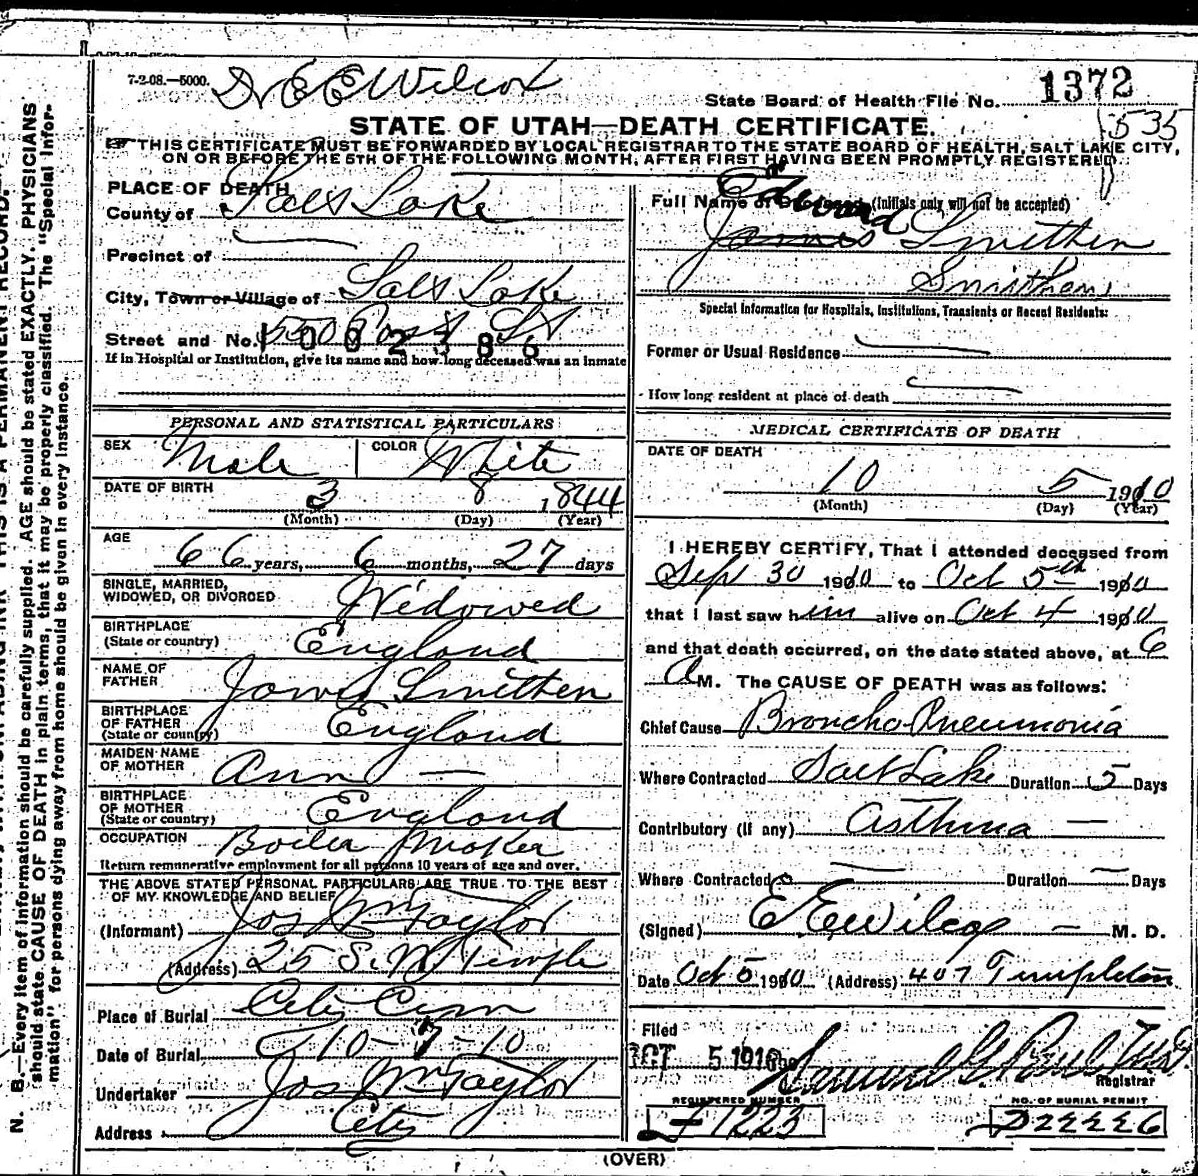 7-2-08.—5000.
Dr E E Wilcox
State Board of Health File No. 1372
535
STATE OF UTAH—DEATH CERTIFICATE.
THIS CERTIFICATE MUST BE FORWARDED BY LOCAL REGISTRAR TO THE STATE BOARD OF HEALTH, SALT LAKE CITY,
ON OR BEFORE THE 5TH OF THE FOLLOWING MONTH, AFTER FIRST HAVING BEEN PROMPTLY REGISTERED.
PLACE OF DEATH
County of Salt Lake
Precinct of
City, Town or Village of Salt Lake
Street and No.
1002386
If in Hospital or Institution, give its name and how long deceased was an inmate
PERSONAL AND STATISTICAL PARTICULARS
SEX Male COLOR White
DATE OF BIRTH 3 8 1844
(Month) (Day) (Year)
AGE 66 years, 6 months, 27 days
SINGLE, MARRIED,
WIDOWED, OR DIVORCED Widowed
BIRTHPLACE
(State or country) England
NAME OF
FATHER James Smithen
BIRTHPLACE
OF FATHER
(State or country) England
MAIDEN NAME
OF MOTHER Ann —
BIRTHPLACE
OF MOTHER
(State or country) England
OCCUPATION Boiler Maker
Return remunerative employment for all persons 10 years of age and over.
THE ABOVE STATED PERSONAL PARTICULARS ARE TRUE TO THE BEST
OF MY KNOWLEDGE AND BELIEF
(Informant) Jos Wm Taylor
(Address) 25 S. W Temple
Place of Burial City Cem
Date of Burial 10-7-10
Undertaker Jos Wm Taylor
Address City
Full Name of Deceased (Initials only will not be accepted)
Edward
James Smithen
Smitham
Special Information for Hospitals, Institutions, Transients or Recent Residents:
Former or Usual Residence
How long resident at place of death
MEDICAL CERTIFICATE OF DEATH
DATE OF DEATH
10 5 1910
(Month) (Day) (Year)
I HEREBY CERTIFY, That I attended deceased from
Sept 30 1910 to Oct 5th 1910
that I last saw him alive on Oct 4 1910
and that death occurred, on the date stated above, at 6
A M. The CAUSE OF DEATH was as follows:
Chief Cause Broncho Pneumonia
Where Contracted Salt Lake Duration 5 Days
Contributory (if any) Asthma —
Where Contracted — Duration — Days
(Signed) E E Wilcox — M. D.
Date Oct 5 1910 (Address) 407 Templeton
Filed
OCT 5 1910
Registrar
REGISTERED NUMBER
1223
NO. OF BURIAL PERMIT
D22226
(OVER)
N. B.—Every item of information should be carefully supplied. AGE should be stated EXACTLY. PHYSICIANS
should state CAUSE OF DEATH in plain terms, that it may be properly classified. The "Special Infor-
mation" for persons dying away from home should be given in every instance.